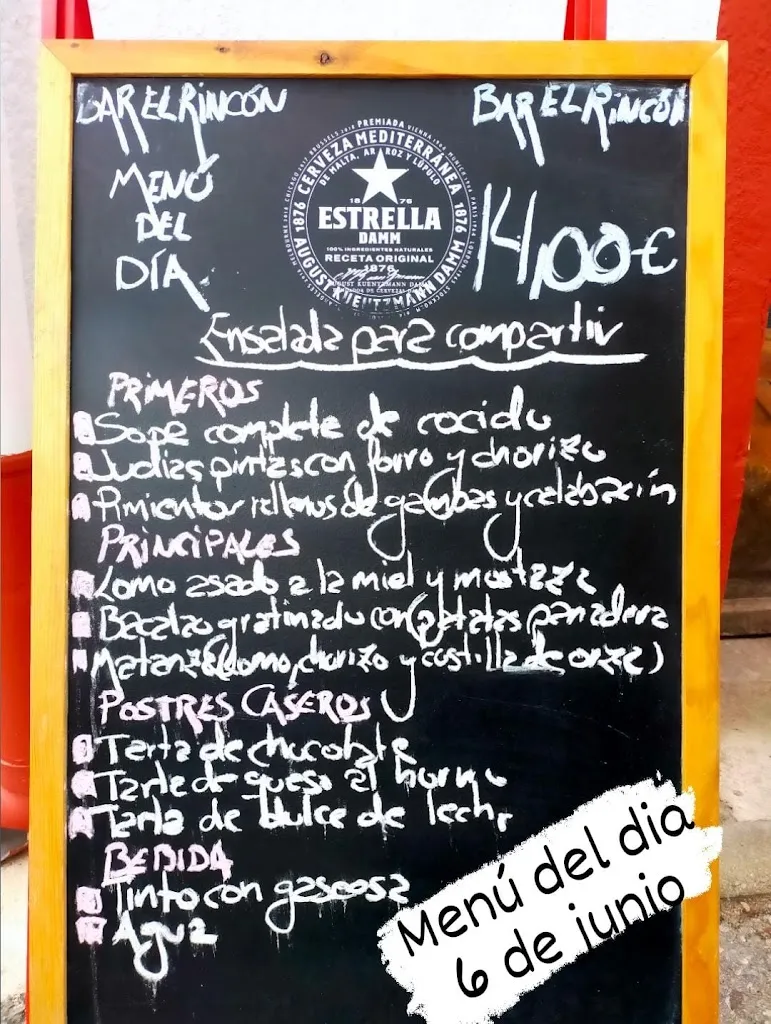 BAR EL RINCÓN
BAR EL RINCÓN
MENÚ
DEL
DÍA
PREMIADA
CERVEZA MEDITERRÁNEA
DE MALTA, ARROZ Y LÚPULO
1876
1876
18 76
ESTRELLA
DAMM
100% INGREDIENTES NATURALES
RECETA ORIGINAL
1876
AUGUST KUENTZMANN DAMM
14,00€
Ensalada para compartir
PRIMEROS
Sopa completa de cocido
Judias pintas con forro y chorizo
Pimientos rellenos de gambas y calabacín
PRINCIPALES
Lomo asado a la miel y mostaza
Bacalao gratinado con patatas panadera
Matanza (lomo, chorizo y costilla de orza)
POSTRES CASEROS
Tarta de chocolate
Tarta de queso al horno
Tarta de dulce de leche
BEBIDA
Tinto con gaseosa
Agua
Menú del dia
6 de junio